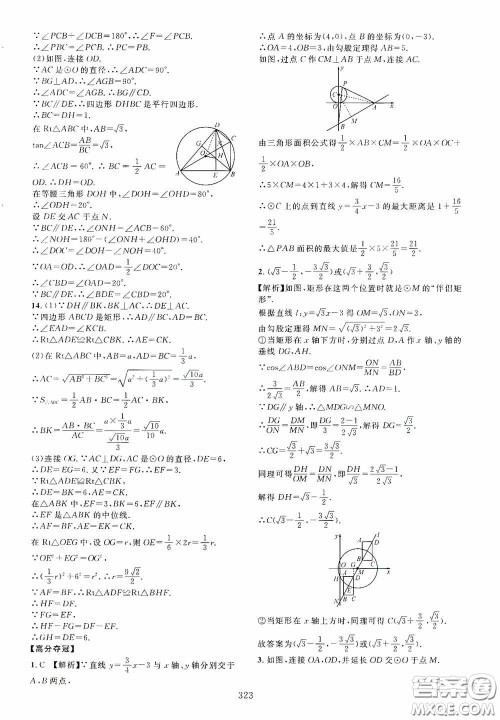 ∵∠PCB+∠DCB=180°,∴∠F=∠PCB.
∵∠FDC=∠PCB.∴∠FDC=∠F.∴CF=CD.
(2)如图,连接 OD.
∵AC 是⊙O 的直径,∴∠ADC=90°.
∵BG⊥AD,∴∠AGB=90°.
∴∠ADC=∠AGB.∴BG∥DC.
∵BC∥DE,∴四边形 DHBC 是平行四边形.
∴BC=DH=1.
在 Rt△ABC 中,AB=√3,
tan∠ACB=AB/BC=√3.
∴∠ACB=60°.∴BC=1/2 AC
=OD.∴DH=OD.
在等腰三角形 DOH 中,∠DOH=∠OHD=80°,
∴∠ODH=20°.
设 DE 交 AC 于点 N.
∵BC∥DE,∴∠ONH=∠ACB=60°.
∴∠NOH=180°-(∠ONH+∠OHD)=40°.
∴∠DOC=∠DOH-∠NOH=40°.
∵OA=OD.∴∠OAD=1/2∠DOC=20°.
∴∠CBD=∠OAD=20°.
∵BC∥DE,∴∠BDE=∠CBD=20°.
14.(1)∵DH∥BK,BK⊥AC,∴DE⊥AC.
∵四边形 ABCD 是矩形,∴AD=BC,AD∥BC.
∴∠EAD=∠KCB.
∴Rt△ADE≌Rt△CBK.∴AE=CK.
(2)在 Rt△ABC 中,AB=a,AD=BC=1/3 a,
∴AC=√(AB²+BC²)=√(a²+(1/3 a)²)=√10a/3.
∵S△ABC=1/2 AB·BC=1/2 AC·BK,
∴BK=AB·BC/AC=(a×1/3 a)/(√10a/3)=√10/10 a.
(3)连接 OG.∵AC⊥DG,AC 是⊙O 的直径,DE=6,
∴DE=EG=6.又∵EF=FG,∴EF=3.
∵Rt△ADE≌Rt△CBK,∴DE=BK=6,
AE=CK.
在△ABK 中,EF=3,BK=6,EF∥BK,
∴EF 是△ABK 的中位线.
∴AF=BF,AE=EK=KC.
在 Rt△OEG 中,设 OG=r,则 OE=1/6×2r=1/3 r,
∵OE²+EG²=OG²,
∴(1/3 r)²+6²=r².∴r=9√2/2.
∵AF=BF,∴△ADF≌△BHF.
∴HF=DF.
∵FG=EF,
∴HF-FG=DF-EF.
∴GH=DE=6.
【高分夺冠】
1.C 【解析】∵直线 y=3/4 x-3 与 x 轴、y 轴分别交于
A、B 两点,
∴点 A 的坐标为(4,0),点 B 的坐标为(0,-3).
∴OA=4,OB=3,由勾股定理得 AB=5.
如图,过点 C 作 CM⊥AB 于点 M,连接 AC,
由三角形面积公式得1/2×AB×CM=1/2×OA×OC+
1/2×OA×OB,
∴5×CM=4×1+3×4,∴CM=16/5.
∴⊙C 上的点到直线 y=3/4 x-3 的最大距离是1+16/5
=21/5.
∴△PAB 面积的最大值是1/2×5×21/5=21/2.
2.(√3-1/2,-3√3/2)或(√3+3/2,√3/2)
【解析】如图,矩形在这两个位置时就是⊙M 的“伴侣矩
形”.
根据直线 l:y=√3x-3 得:OM=√3,ON=3,
由勾股定理得 MN=√((√3)²+3²)=2√3.
①当矩形在 x 轴下方时,分别过点 A,D 作 x 轴、y 轴的
垂线 DG,AH.
∵cos∠ABD=cos∠ONM=ON/MN=AB/BD,
∴3/2√3=√3/BD,解得 BD=2.∴AD=1.
∵DG∥y 轴,∴△MDG∽△MNO.
∴DG/ON=DM/MN,即DG/3=1/2√3,解得 DG=√3/2.
∴CG=√3/2+√3=3√3/2.
同理可得DH/OM=DN/MN,即DH/√3=(2√3-1)/2√3.
解得 DH=√3-1/2.
∴C(√3-1/2,-3√3/2).
②当矩形在 x 轴上方时,同理可得 C(√3+3/2,√3/2).
故答案为(√3-1/2,-3√3/2)或(√3+3/2,√3/2).
3.如图,连接 OA,OD,并延长 OD 交⊙O 于点 M.
323